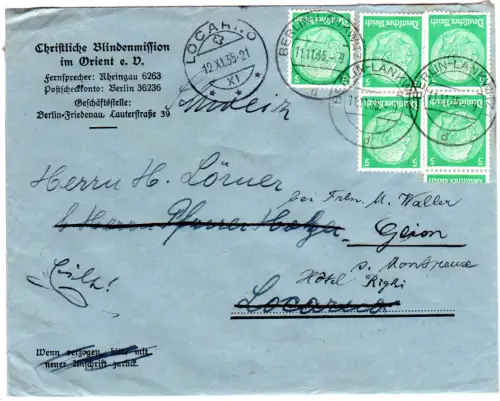 Christliche Blindenmission
im Orient e. V.
Fernsprecher: Rheingau 6263
Postscheckkonto: Berlin 36236
Geschäftsstelle:
Berlin-Friedenau, Lauterstraße 39
LOCARNO
12.XI.35-21
XI
BERLIN-LANKWITZ
11.11.35
d
Deutsches Reich
5
Deutsches Reich
5
5
5
5
BERLIN-LANKWITZ
11.11.35
Schweiz
Herrn H. Lörner
bei Frln. M. Waller
b/ Herrn Pfarrer
Glion
s. Montreux
Hôtel Righi
Eilt!
Locarno
Wenn verzogen, bitte mit
neuer Anschrift zurück.